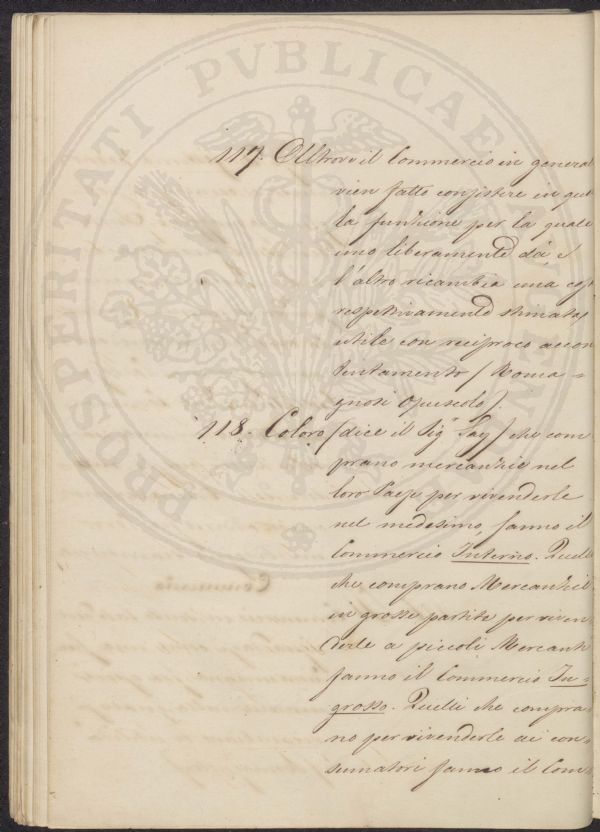 117. Altrove il Commercio in general
vien fatto consistere in quel
la funzione per la quale
uno liberamente dà, e
l'altro ricambia una cosa
respettivamente stimata
utile con reciproco accon
tentamento / Roma =
gnosi Opuscolo /.
118. Coloro / dice il Sig.r Say / che com
prano mercanzie nel
loro Paese per rivenderle
nel medesimo, fanno il
Commercio Interno. Quelli
che comprano Mercanzie
in grosse partite per riven
derle a piccoli Mercanti
fanno il Commercio In=
grosso. Quelli che compra
no per rivenderle ai con=
sumatori fanno il Com=
PROSPERITATI PVBLICAE